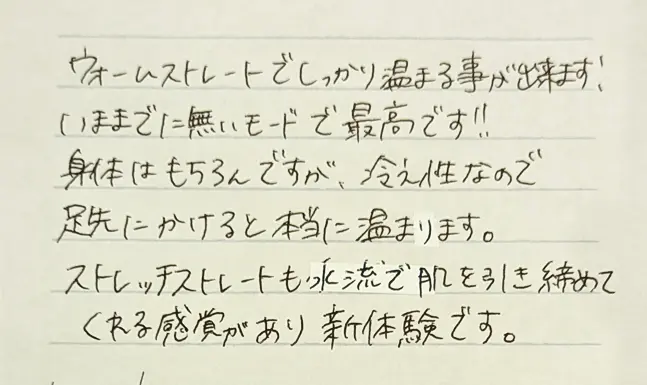 ウォームストレートでしっかり温まる事が出来ます!
いままでに無いモードで最高です!!
身体はもちろんですが、冷え性なので
足先にかけると本当に温まります。
ストレッチストレートも水流で肌を引き締めて
くれる感覚があり新体験です。